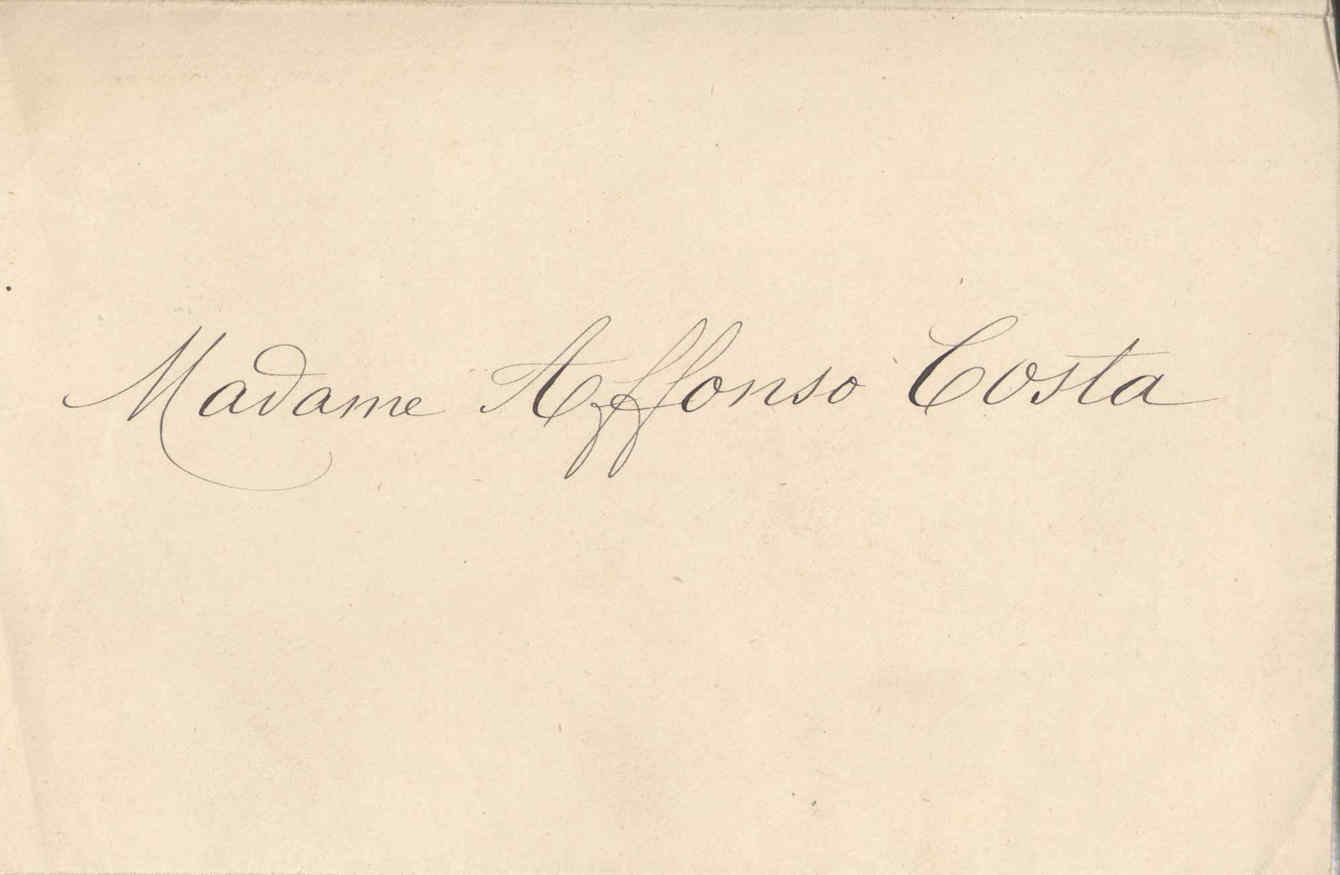 Madame Affonso Costa